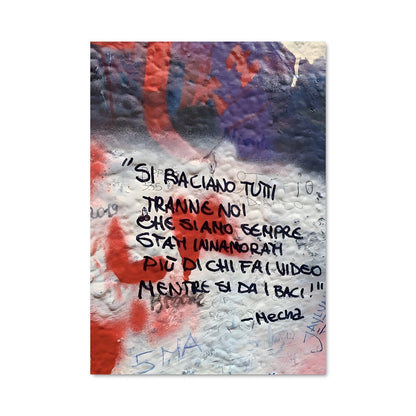 "SI BACIANO TUTTI
TRANNE NOI
CHE SIAMO SEMPRE
STATI INNAMORATI
PIÙ DI CHI FA I VIDEO
MENTRE SI DA I BACI!"
- Mecna
5MA